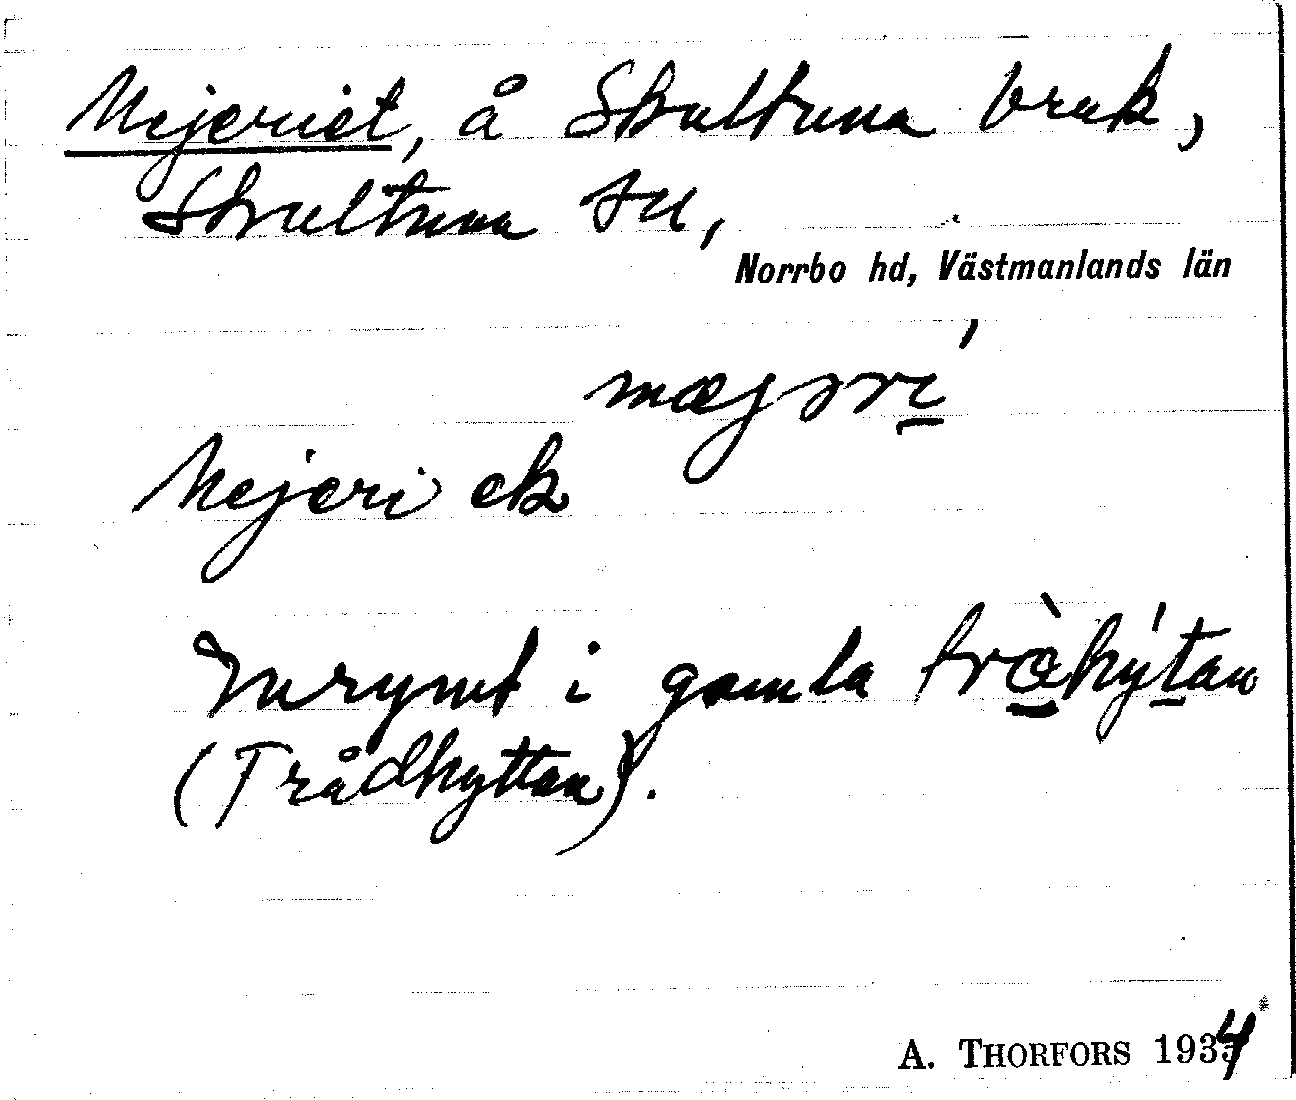 Mejeriet, å Skultuna bruk,
Skultuna sn,
Norrbo hd, Västmanlands län
mæjəri̱´
Mejeri ek
Inrymt i gamla trà̱hý̱tan
(Trådhyttan).
A. THORFORS 1934